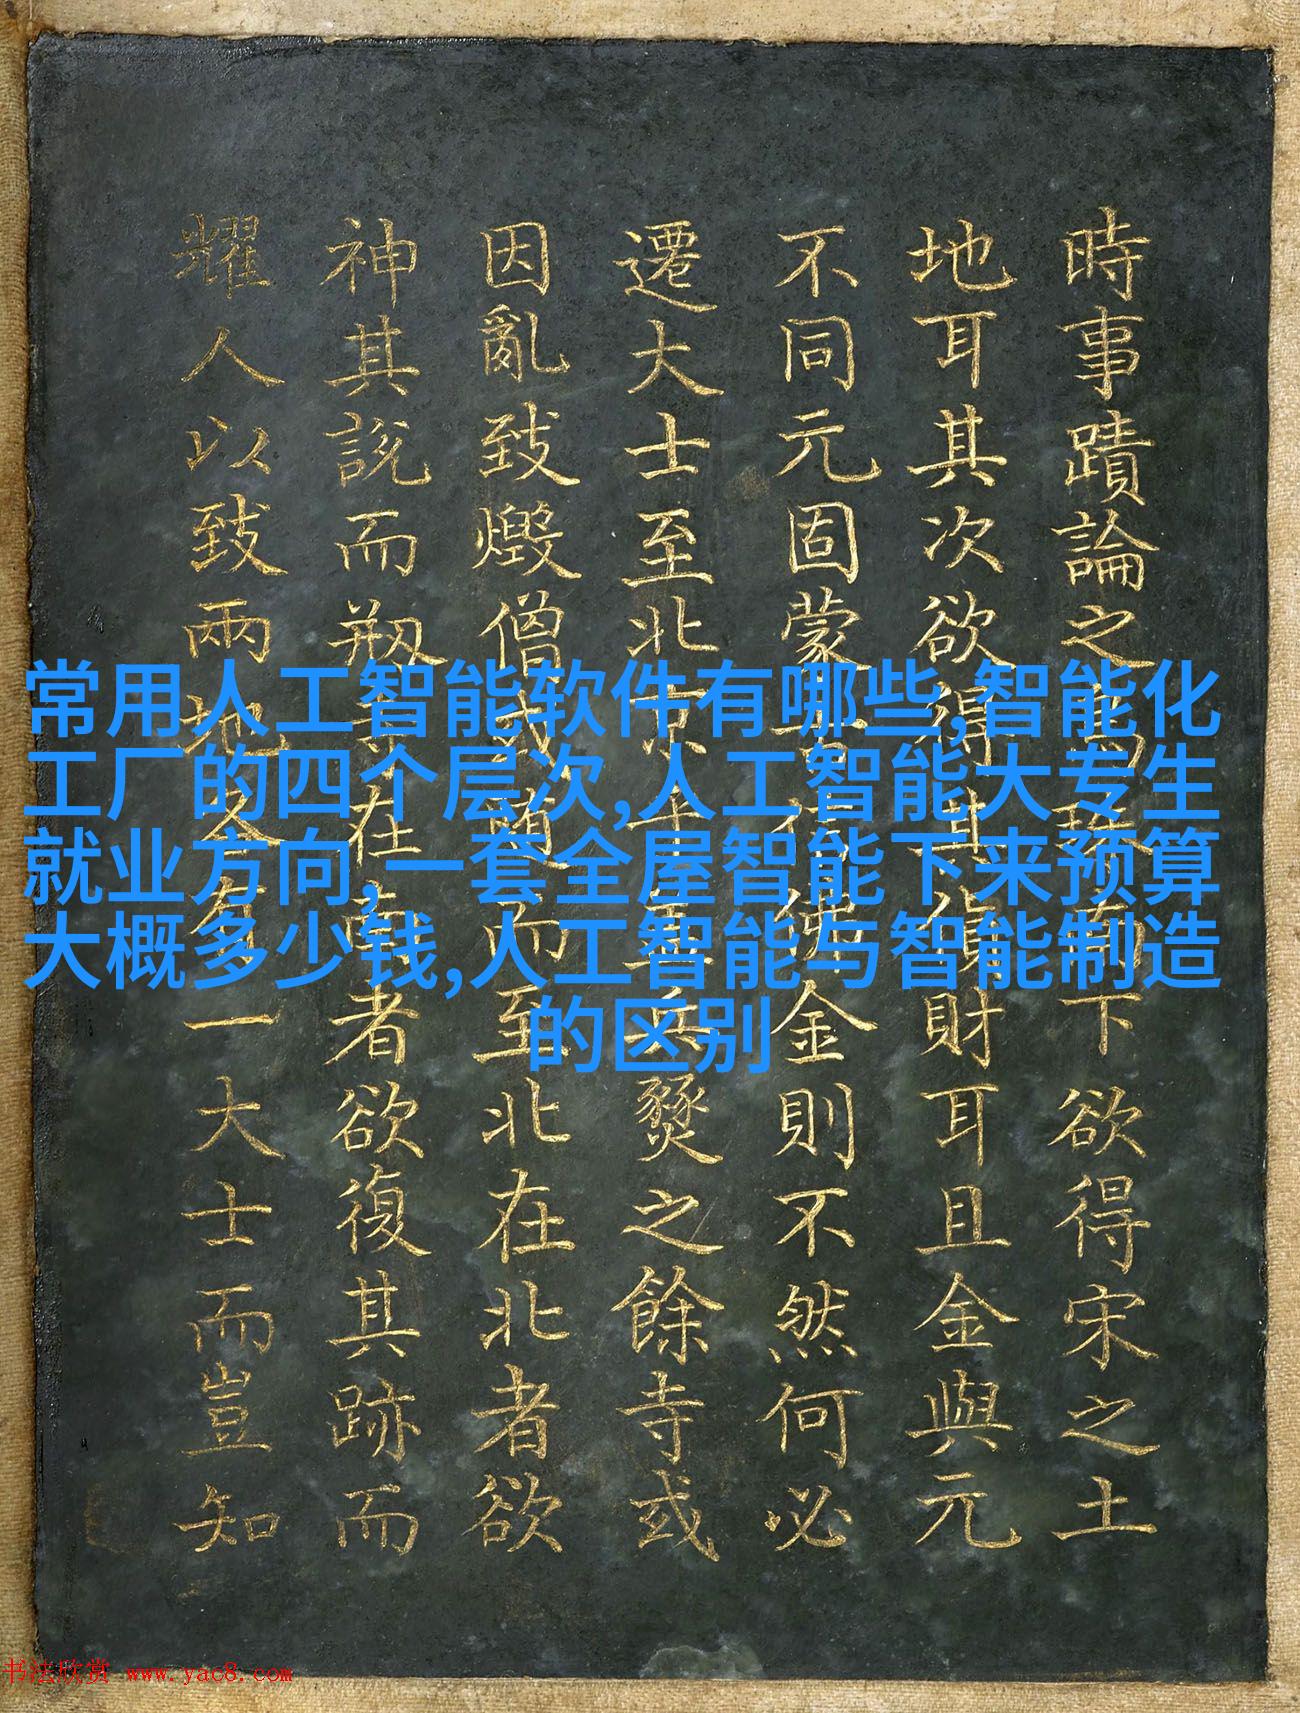 時事蹟論之下欲得宋之土
地耳其次欲得其貨財耳且金與元
不同元固蒙金則不然何必
遷大士至北京兵燹之餘寺或
因亂致燬僧或随而至北在北者欲
神其說而刱在南者欲復其跡而
耀人以致兩地各多一大士而豈知
常用人工智能软件有哪些,智能化
工厂的四个层次,人工智能大专生
就业方向,一套全屋智能下来预算
大概多少钱,人工智能与智能制造
的区别
书法欣赏 www.yac8.com